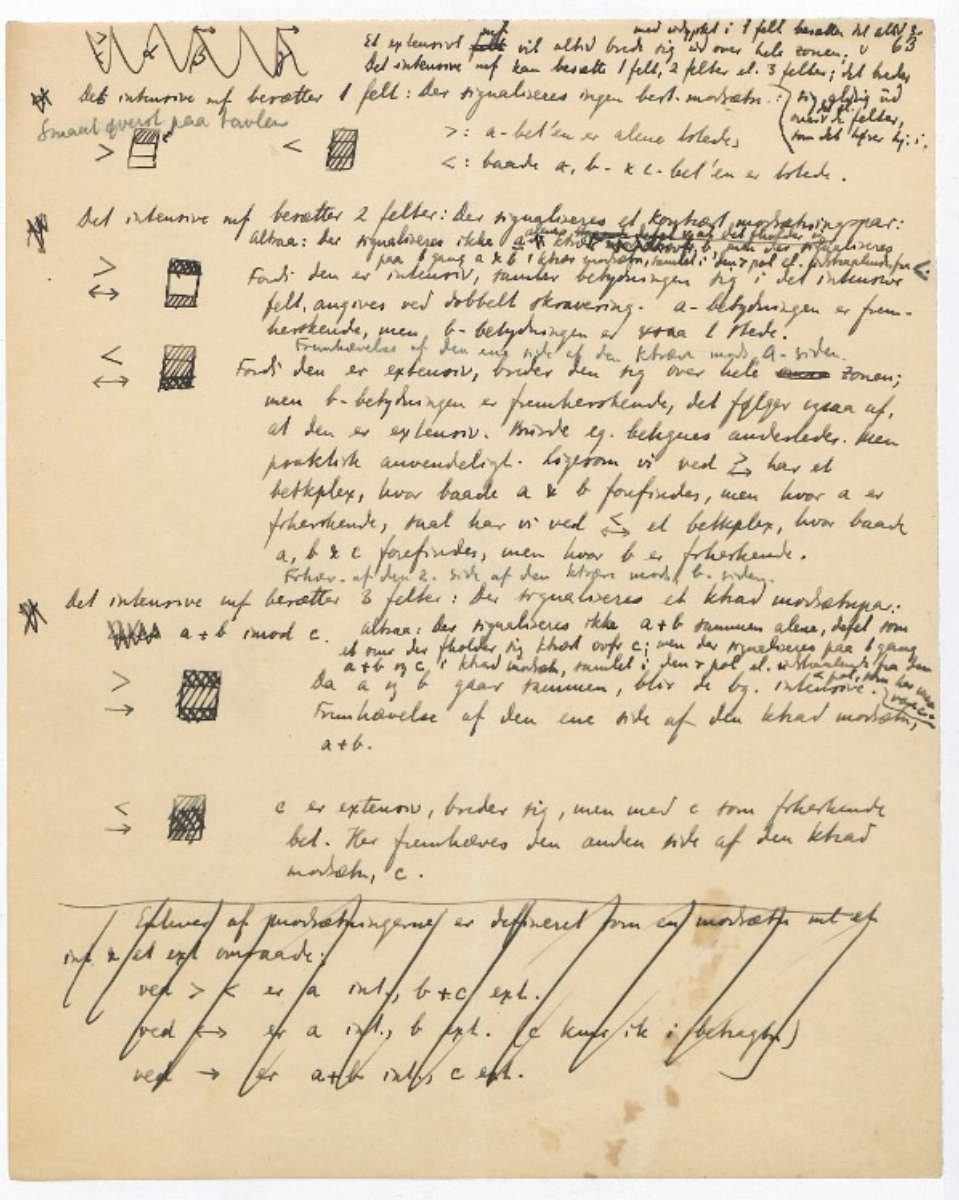 63
med udgpkt i 1 felt besætter det altid
Et extensivt mf vil altid brede sig ud over hele zonen.
Det intensive mf kan besætte 1 felt, 2 felter el. 3 felter; det breder
sig aldrig ud
over de felter,
som det hører hj. i.
Det intensive mf besætter 1 felt: Der signaliseres ingen best. modsætn.:
Smaat øverst paa tavlen
> <
>: a-bet'en er alene tilstede,
<: baade a, b- & c-bet'en er tilstede.
Det intensive mf besætter 2 felter: Der signaliseres et kontrært modsætningspar:
altsaa: der signaliseres ikke a & b, men der signaliseres
paa 1 gang a & b i ktrær modsætn, samlet i den + pol el. udstraalende fra <
> ↔
Fordi den er intensiv, samler betydningen sig i det intensive
felt, angives ved dobbelt skravering. a-betydningen er frem-
herskende, men b-betydningen er ogsaa t stede.
Fremhævelse af den ene side af den ktrære mods, a-siden.
< ↔
Fordi den er extensiv, breder den sig over hele zonen;
men b-betydningen er fremherskende, det følger ogsaa af,
at den er extensiv. Burde eg. betegnes anderledes. Men
praktisk anvendeligt. Ligesom vi ved > ↔ har et
betkplex, hvor baade a & b forefindes, men hvor a er
frherskende, saal har vi ved < ↔ et betkplex, hvor baade
a, b & c forefindes, men hvor b er frherskende.
Frhæv. af den 2. side af den ktrære mods, b-siden.
Det intensive mf besætter 3 felter: Der signaliseres et ktrad modsætnpar:
a+b imod c. altsaa: der signaliseres ikke a+b sammen alene,
et omr der fholder sig ktrad ovfr c; men der signaliseres paa 1 gang
a+b og c, i ktrad modsætn, samlet i den + pol el. udstraalende fra den
÷ pol, som har
> →
Da a og b gaar sammen, blir de bg. intensive.
Fremhævelse af den ene side af den ktrad modsætn,
a+b.
< →
c er extensiv, breder sig, men med c som frherskende
bet. Her fremhæves den anden side af den ktrad
modsætn, c.
Enhver af modsætningerne er defineret som en modsætn ml et
int & et ext omraade:
ved > < er a int., b+c ext.
ved ↔ er a int., b ext. (c kmr ik i betragtn)
ved → er a+b int, c ext.